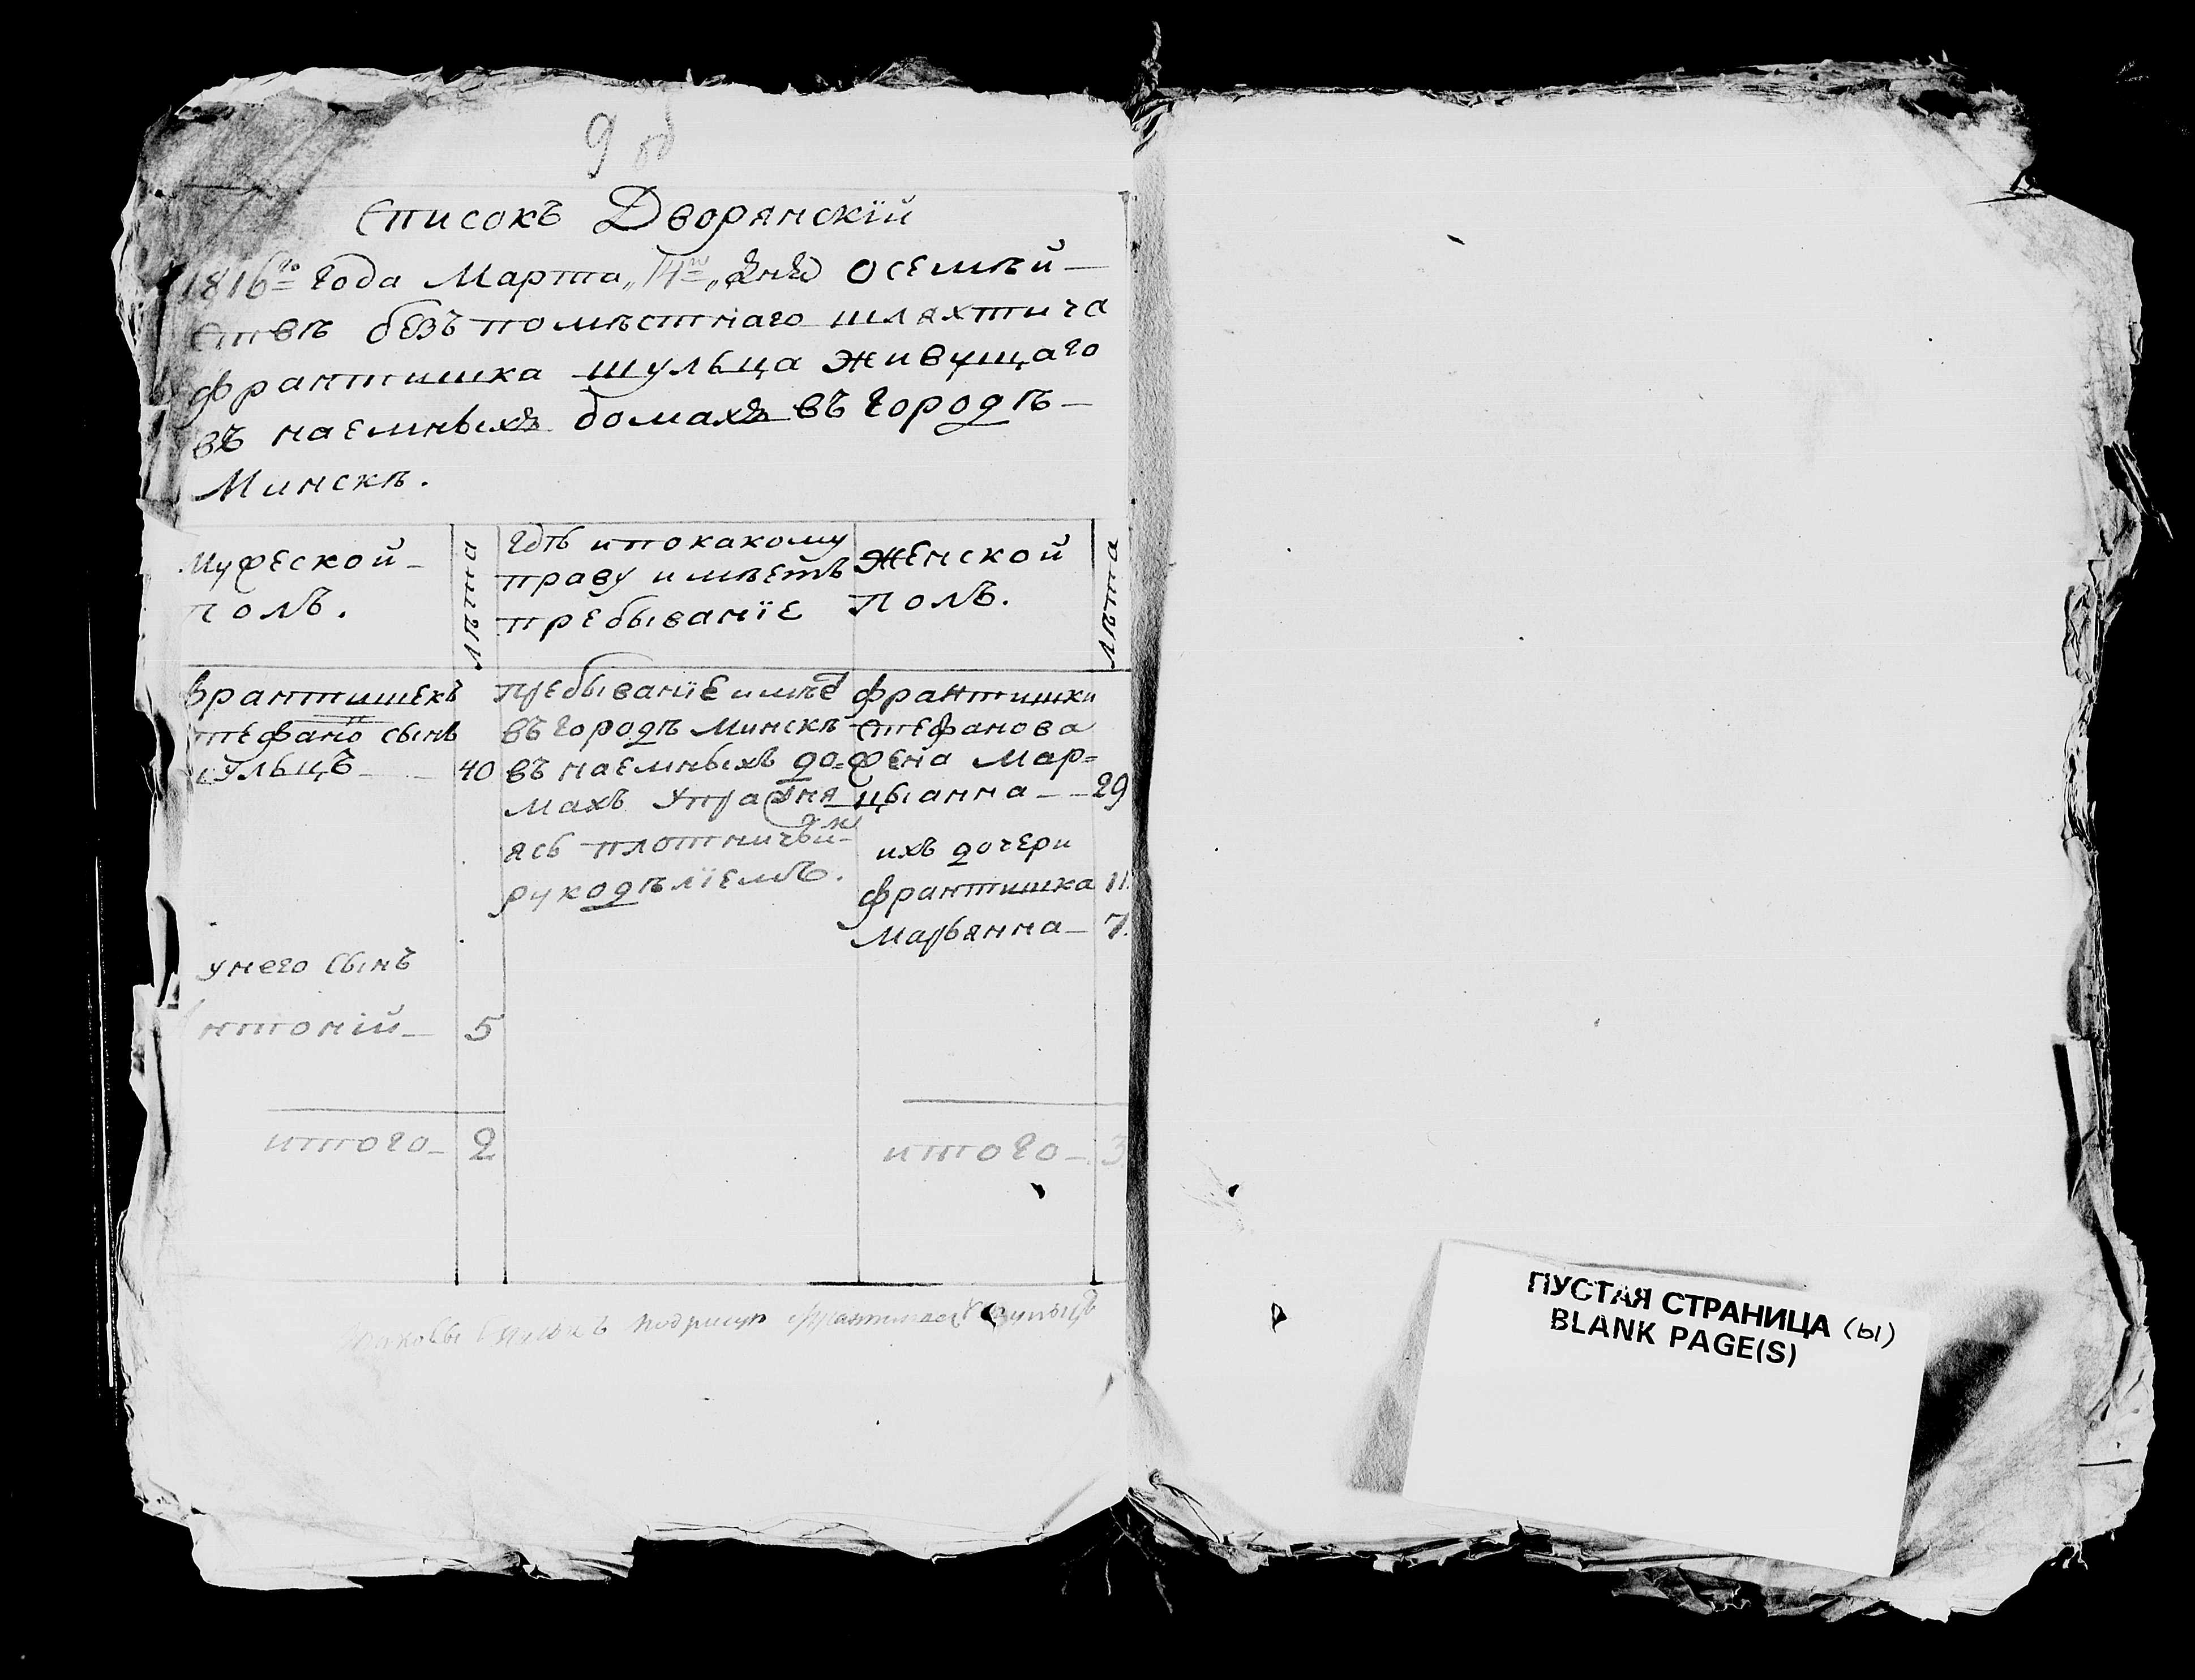 9 об
Списокъ Дворянскій
1816го года Марта „14го„ дня о семѣй-
ствѣ безъ помѣстнаго шляхтича
франтишка шульца живущаго
въ наемныхъ домахъ въ городѣ-
Минскѣ.
Мужеской-
полъ.
лѣта
гдѣ и по какому
праву имѣетъ
пребываніе
Женской
полъ.
лѣта
Франтишекъ
Стефано сынъ
Шульцъ 40
пребываніе имѣе
въ городѣ Минскѣ
въ наемныхъ до=
махъ Упражня
ясь плотничьи-
рукодѣліемъ.
франтишки
Стефанова
жена Мар=
цыанна - - 29
ихъ дочери
франтишка 11.
Марьянна- 7.
у него сынъ
Антоній- 5
итого- 2
итого- 3
ПУСТАЯ СТРАНИЦА (Ы)
BLANK PAGE(S)